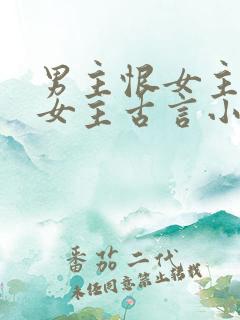 男主恨女主
女主古言小
番茄二代
未经同意禁止转载